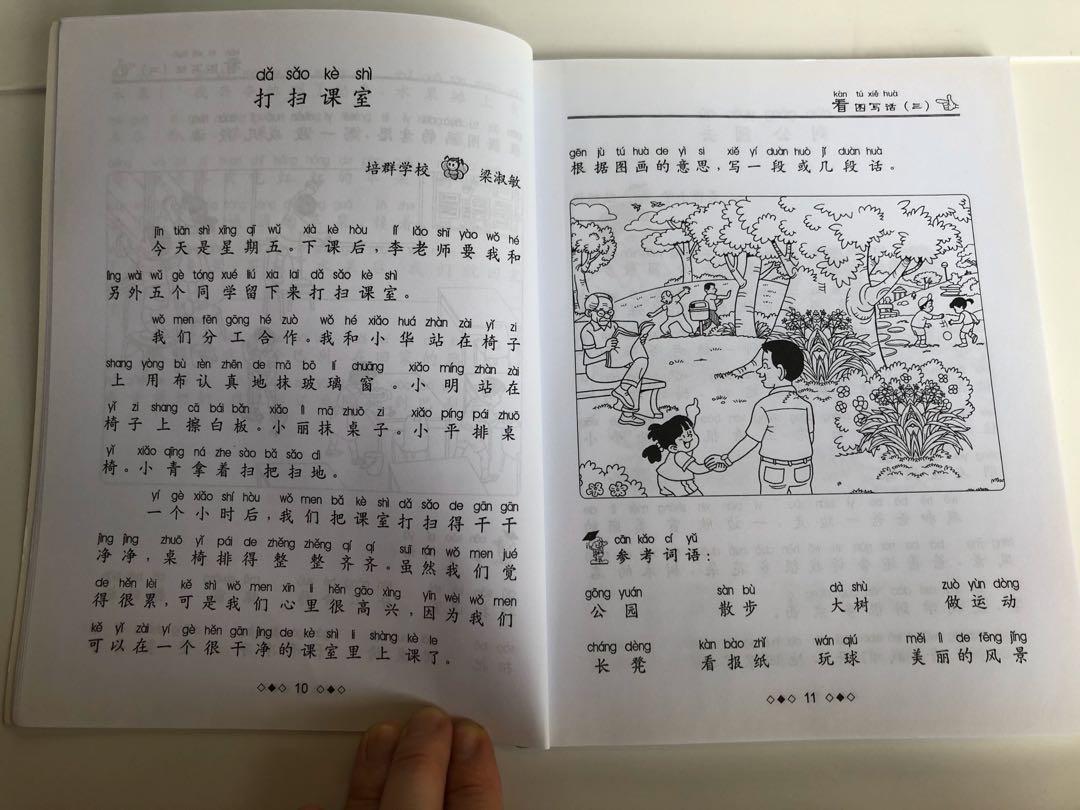 dǎ sǎo kè shì
打扫课室
培群学校 梁淑敏
jīn tiān shì xīng qī wǔ xià kè hòu lǐ lǎo shī yào wǒ hé
今天是星期五。下课后,李老师要我和
lìng wài wǔ gè tóng xué liú xia lai dǎ sǎo kè shì
另外五个同学留下来打扫课室。
wǒ men fēn gōng hé zuò wǒ hé xiǎo huá zhàn zài yǐ zi
我们分工合作。我和小华站在椅子
shang yòng bù rèn zhēn de mā bō lí chuāng xiǎo míng zhàn zài
上用布认真地抹玻璃窗。小明站在
yǐ zi shang cā bái bǎn xiǎo lì mā zhuō zi xiǎo píng pái zhuō
椅子上擦白板。小丽抹桌子。小平排桌
yǐ xiǎo qīng ná zhe sào bǎ sǎo dì
椅。小青拿着扫把扫地。
yí gè xiǎo shí hòu wǒ men bǎ kè shì dǎ sǎo de gān gān
一个小时后,我们把课室打扫得干干
jìng jìng zhuō yǐ pái de zhěng zhěng qí qí suī rán wǒ men jué
净净,桌椅排得整整齐齐。虽然我们觉
de hěn lèi kě shì wǒ men xīn li hěn gāo xìng yīn wèi wǒ men
得很累,可是我们心里很高兴,因为我们
kě yǐ zài yí gè hěn gān jìng de kè shì li shàng kè le
可以在一个很干净的课室里上课了。
10
kàn tú xiě huà
看图写话(三)
gēn jù tú huà de yì si xiě yí duàn huò jǐ duàn huà
根据图画的意思,写一段或几段话。
cān kǎo cí yǔ
参考词语:
gōng yuán sàn bù dà shù zuò yùn dòng
公园 散步 大树 做运动
cháng dèng kàn bào zhǐ wán qiú měi lì de fēng jǐng
长凳 看报纸 玩球 美丽的风景
11